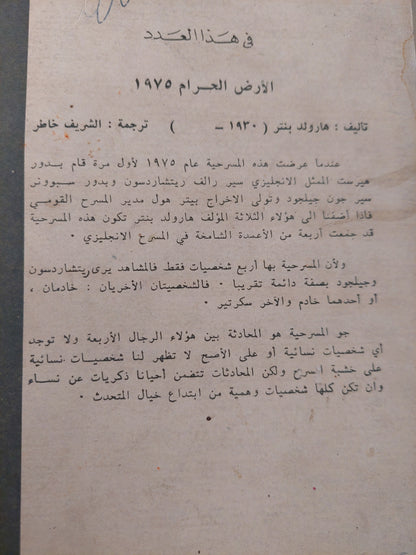 في هذا العدد
الأرض الحرام ١٩٧٥
تأليف : هارولد بنتر ( ١٩٣٠ – ) ترجمة : الشريف خاطر
عندما عرضت هذه المسرحية عام ١٩٧٥ لأول مرة قام بدور
هيرست الممثل الانجليزي سير رالف ريتشاردسون وبدور سبوونر
سير جون جيلجود وتولى الاخراج بيتر هول مدير المسرح القومي
فاذا أضفنا الى هؤلاء الثلاثة المؤلف هارولد بنتر تكون هذه المسرحية
قد جمعت أربعة من الأعمدة الشامخة في المسرح الانجليزي .
ولأن المسرحية بها أربع شخصيات فقط فالمشاهد يرى ريتشاردسون
وجيلجود بصفة دائمة تقريبا . فالشخصيتان الأخريان : خادمان ،
أو أحدهما خادم والآخر سكرتير .
جو المسرحية هو المحادثة بين هؤلاء الرجال الأربعة ولا توجد
أي شخصيات نسائية أو على الأصح لا تظهر لنا شخصيات نسائية
على خشبة المسرح ولكن المحادثات تتضمن أحيانا ذكريات عن نساء
وان تكن كلها شخصيات وهمية من ابتداع خيال المتحدث .